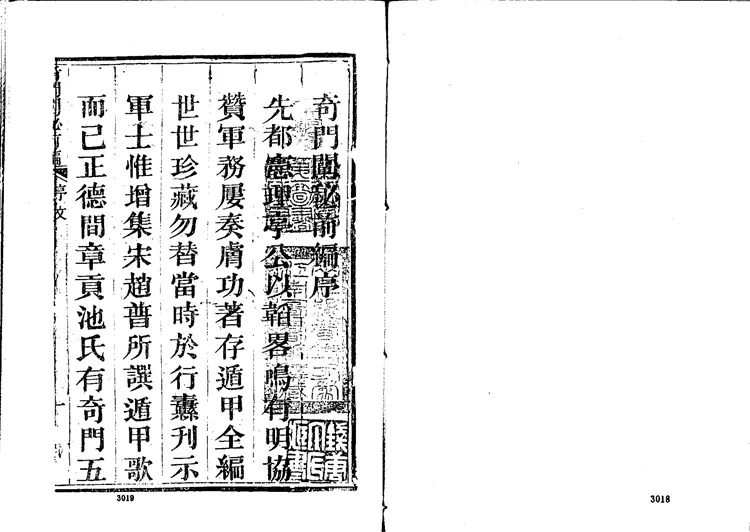 奇門闡秘前編序
先都憲理亭公以韜畧鳴有明協
贊軍務屢奏膚功著存遁甲全編
世世珍藏勿替當時於行纛刊示
軍士惟增集宋趙普所譔遁甲歌
而已正德間章貢池氏有奇門五
序文
3019
3018